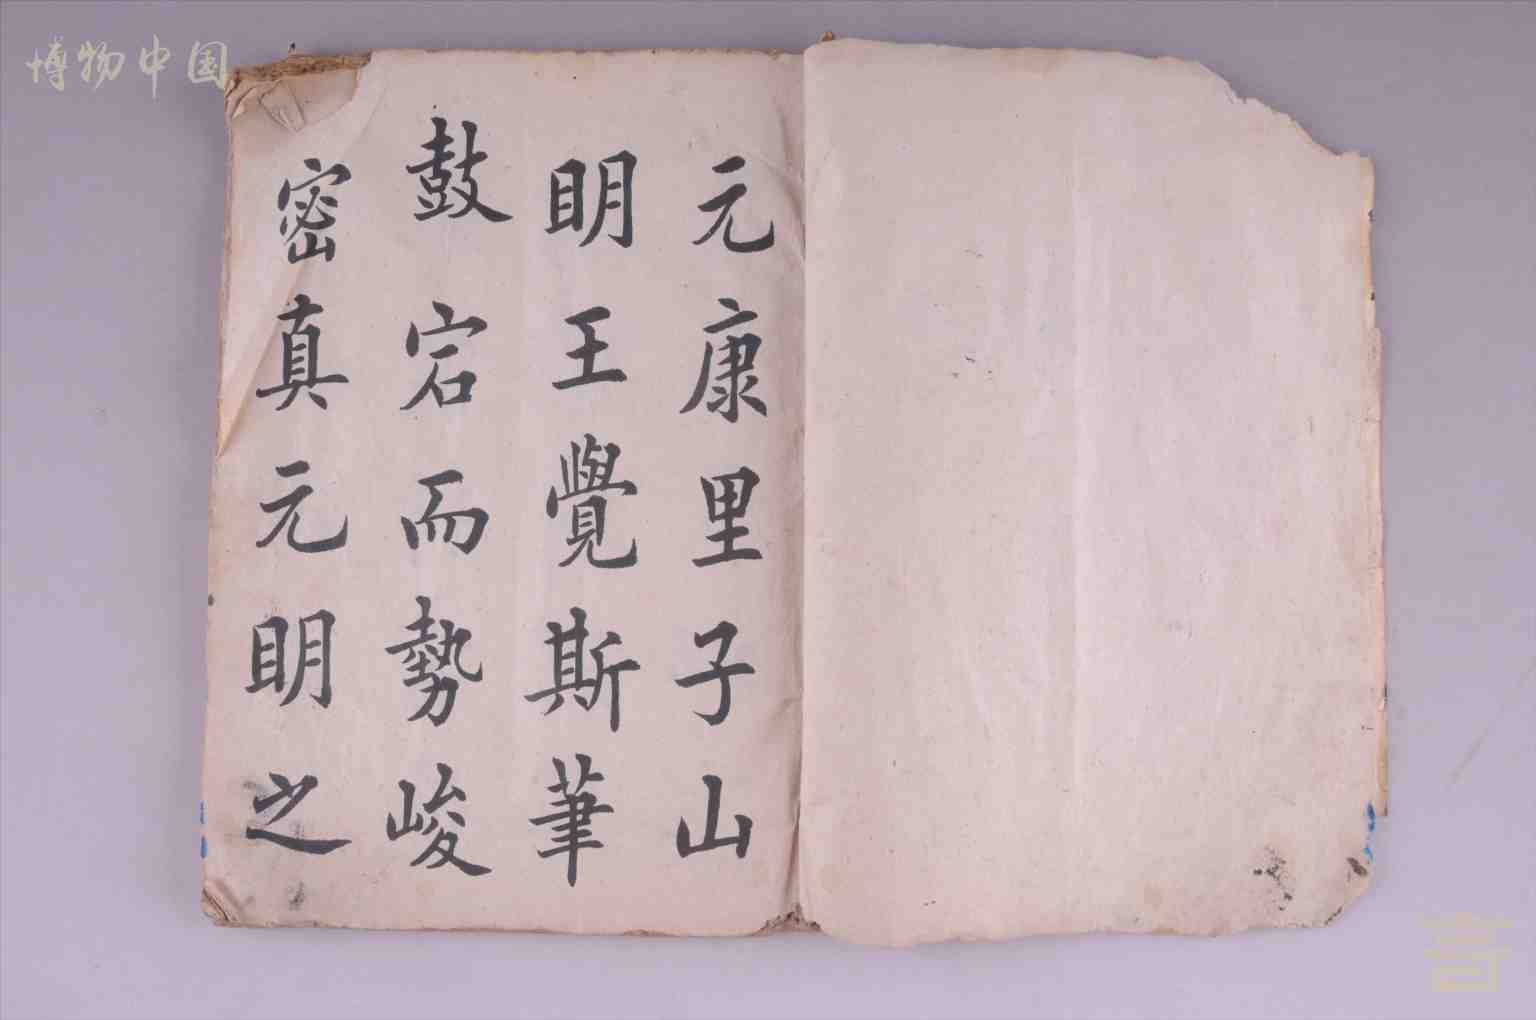 博物中国
元康里子山
明王覺斯筆
鼓宕而勢峻
密真元明之